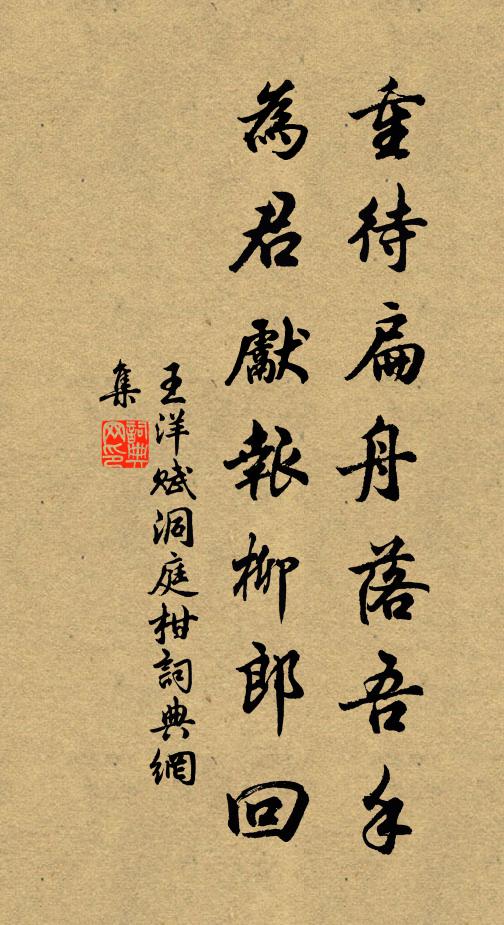 重待扁舟落吾手
為君獻報柳郎回
王洋賦洞庭柑詞典網
集
詞典
网印